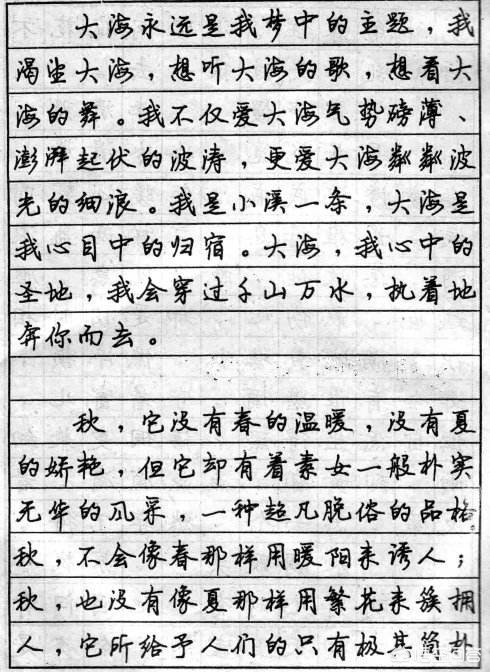 大海永远是我梦中的主题，我
渴望大海，想听大海的歌，想看大
海的舞。我不仅爱大海气势磅薄、
澎湃起伏的波涛，更爱大海粼粼波
光的细浪。我是小溪一条，大海是
我心目中的归宿。大海，我心中的
圣地，我会穿过千山万水，执着地
奔你而去。
秋，它没有春的温暖，没有夏
的娇艳，但它却有着素女一般朴实
无华的风采，一种超凡脱俗的品格
秋，不会像春那样用暖阳来诱人；
秋，也没有像夏那样用繁花来簇拥
人，它所给予人们的只有极其简朴